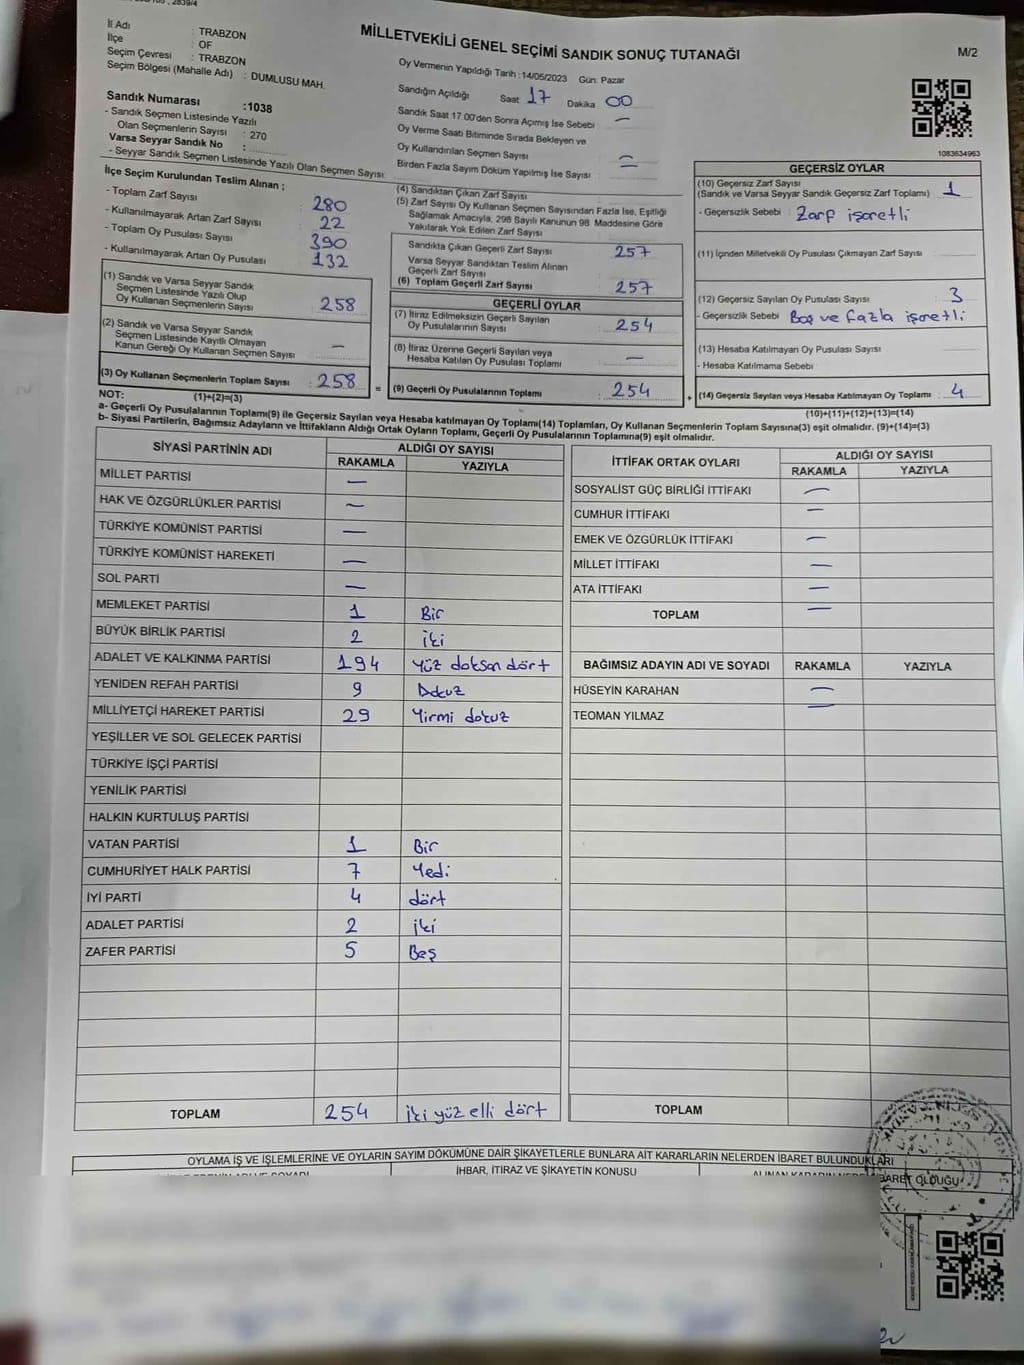 İl Adı : TRABZON
İlçe : OF
Seçim Çevresi : TRABZON
Seçim Bölgesi (Mahalle Adı) : DUMLUSU MAH.
MİLLETVEKİLİ GENEL SEÇİMİ SANDIK SONUÇ TUTANAĞI
M/2
Oy Vermenin Yapıldığı Tarih :14/05/2023 Gün: Pazar
Sandığın Açıldığı Saat 17 Dakika 00
Sandık Saat 17.00'den Sonra Açımış İse Sebebi —
Oy Verme Saati Bitiminde Sırada Bekleyen ve
Oy Kullandırılan Seçmen Sayısı —
Birden Fazla Sayım Döküm Yapılmış İse Sayısı —
Sandık Numarası :1038
- Sandık Seçmen Listesinde Yazılı
Olan Seçmenlerin Sayısı : 270
Varsa Seyyar Sandık No :
- Seyyar Sandık Seçmen Listesinde Yazılı Olan Seçmen Sayısı:
1083634963
İlçe Seçim Kurulundan Teslim Alınan ;
- Toplam Zarf Sayısı 280
- Kullanılmayarak Artan Zarf Sayısı 22
- Toplam Oy Pusulası Sayısı 390
- Kullanılmayarak Artan Oy Pusulası 132
(1) Sandık ve Varsa Seyyar Sandık
Seçmen Listesinde Yazılı Olup
Oy Kullanan Seçmenlerin Sayısı 258
(2) Sandık ve Varsa Seyyar Sandık
Seçmen Listesinde Kayıtlı Olmayan
Kanun Gereği Oy Kullanan Seçmen Sayısı —
(3) Oy Kullanan Seçmenlerin Toplam Sayısı 258 =
(1)+(2)=(3)
(4) Sandıktan Çıkan Zarf Sayısı
(5) Zarf Sayısı Oy Kullanan Seçmen Sayısından Fazla İse, Eşitliği
Sağlamak Amacıyla, 298 Sayılı Kanunun 98. Maddesine Göre
Yakılarak Yok Edilen Zarf Sayısı
Sandıkta Çıkan Geçerli Zarf Sayısı 257
Varsa Seyyar Sandıktan Teslim Alınan
Geçerli Zarf Sayısı
(6) Toplam Geçerli Zarf Sayısı 257
GEÇERLİ OYLAR
(7) İtiraz Edilmeksizin Geçerli Sayılan
Oy Pusulalarının Sayısı 254
(8) İtiraz Üzerine Geçerli Sayılan veya
Hesaba Katılan Oy Pusulası Toplamı —
(9) Geçerli Oy Pusulalarının Toplamı 254 +
GEÇERSİZ OYLAR
(10) Geçersiz Zarf Sayısı 1
(Sandık ve Varsa Seyyar Sandık Geçersiz Zarf Toplamı)
- Geçersizlik Sebebi : Zarf işaretli
(11) İçinden Milletvekili Oy Pusulası Çıkmayan Zarf Sayısı
(12) Geçersiz Sayılan Oy Pusulası Sayısı 3
- Geçersizlik Sebebi Boş ve fazla işaretli
(13) Hesaba Katılmayan Oy Pusulası Sayısı
- Hesaba Katılmama Sebebi
(14) Geçersiz Sayılan veya Hesaba Katılmayan Oy Toplamı 4
(10)+(11)+(12)+(13)=(14)
NOT:
a- Geçerli Oy Pusulalarının Toplamı(9) ile Geçersiz Sayılan veya Hesaba katılmayan Oy Toplamı(14) Toplamları, Oy Kullanan Seçmenlerin Toplam Sayısına(3) eşit olmalıdır. (9)+(14)=(3)
b- Siyasi Partilerin, Bağımsız Adayların ve İttifakların Aldığı Ortak Oyların Toplamı, Geçerli Oy Pusulalarının Toplamına(9) eşit olmalıdır.
SİYASİ PARTİNİN ADI ALDIĞI OY SAYISI
RAKAMLA YAZIYLA
MİLLET PARTİSİ —
HAK VE ÖZGÜRLÜKLER PARTİSİ —
TÜRKİYE KOMÜNİST PARTİSİ —
TÜRKİYE KOMÜNİST HAREKETİ —
SOL PARTİ —
MEMLEKET PARTİSİ 1 Bir
BÜYÜK BİRLİK PARTİSİ 2 iki
ADALET VE KALKINMA PARTİSİ 194 Yüz doksan dört
YENİDEN REFAH PARTİSİ 9 Dokuz
MİLLİYETÇİ HAREKET PARTİSİ 29 Yirmi dokuz
YEŞİLLER VE SOL GELECEK PARTİSİ
TÜRKİYE İŞÇİ PARTİSİ
YENİLİK PARTİSİ
HALKIN KURTULUŞ PARTİSİ
VATAN PARTİSİ 1 Bir
CUMHURİYET HALK PARTİSİ 7 Yedi
İYİ PARTİ 4 dört
ADALET PARTİSİ 2 iki
ZAFER PARTİSİ 5 Beş
TOPLAM 254 iki yüz elli dört
İTTİFAK ORTAK OYLARI ALDIĞI OY SAYISI
RAKAMLA YAZIYLA
SOSYALİST GÜÇ BİRLİĞİ İTTİFAKI —
CUMHUR İTTİFAKI —
EMEK VE ÖZGÜRLÜK İTTİFAKI —
MİLLET İTTİFAKI —
ATA İTTİFAKI —
TOPLAM —
BAĞIMSIZ ADAYIN ADI VE SOYADI RAKAMLA YAZIYLA
HÜSEYİN KARAHAN —
TEOMAN YILMAZ —
TOPLAM
OYLAMA İŞ VE İŞLEMLERİNE VE OYLARIN SAYIM DÖKÜMÜNE DAİR ŞİKAYETLERLE BUNLARA AİT KARARLARIN NELERDEN İBARET BULUNDUKLARI
İHBAR, İTİRAZ VE ŞİKAYETİN KONUSU
OLDUĞU